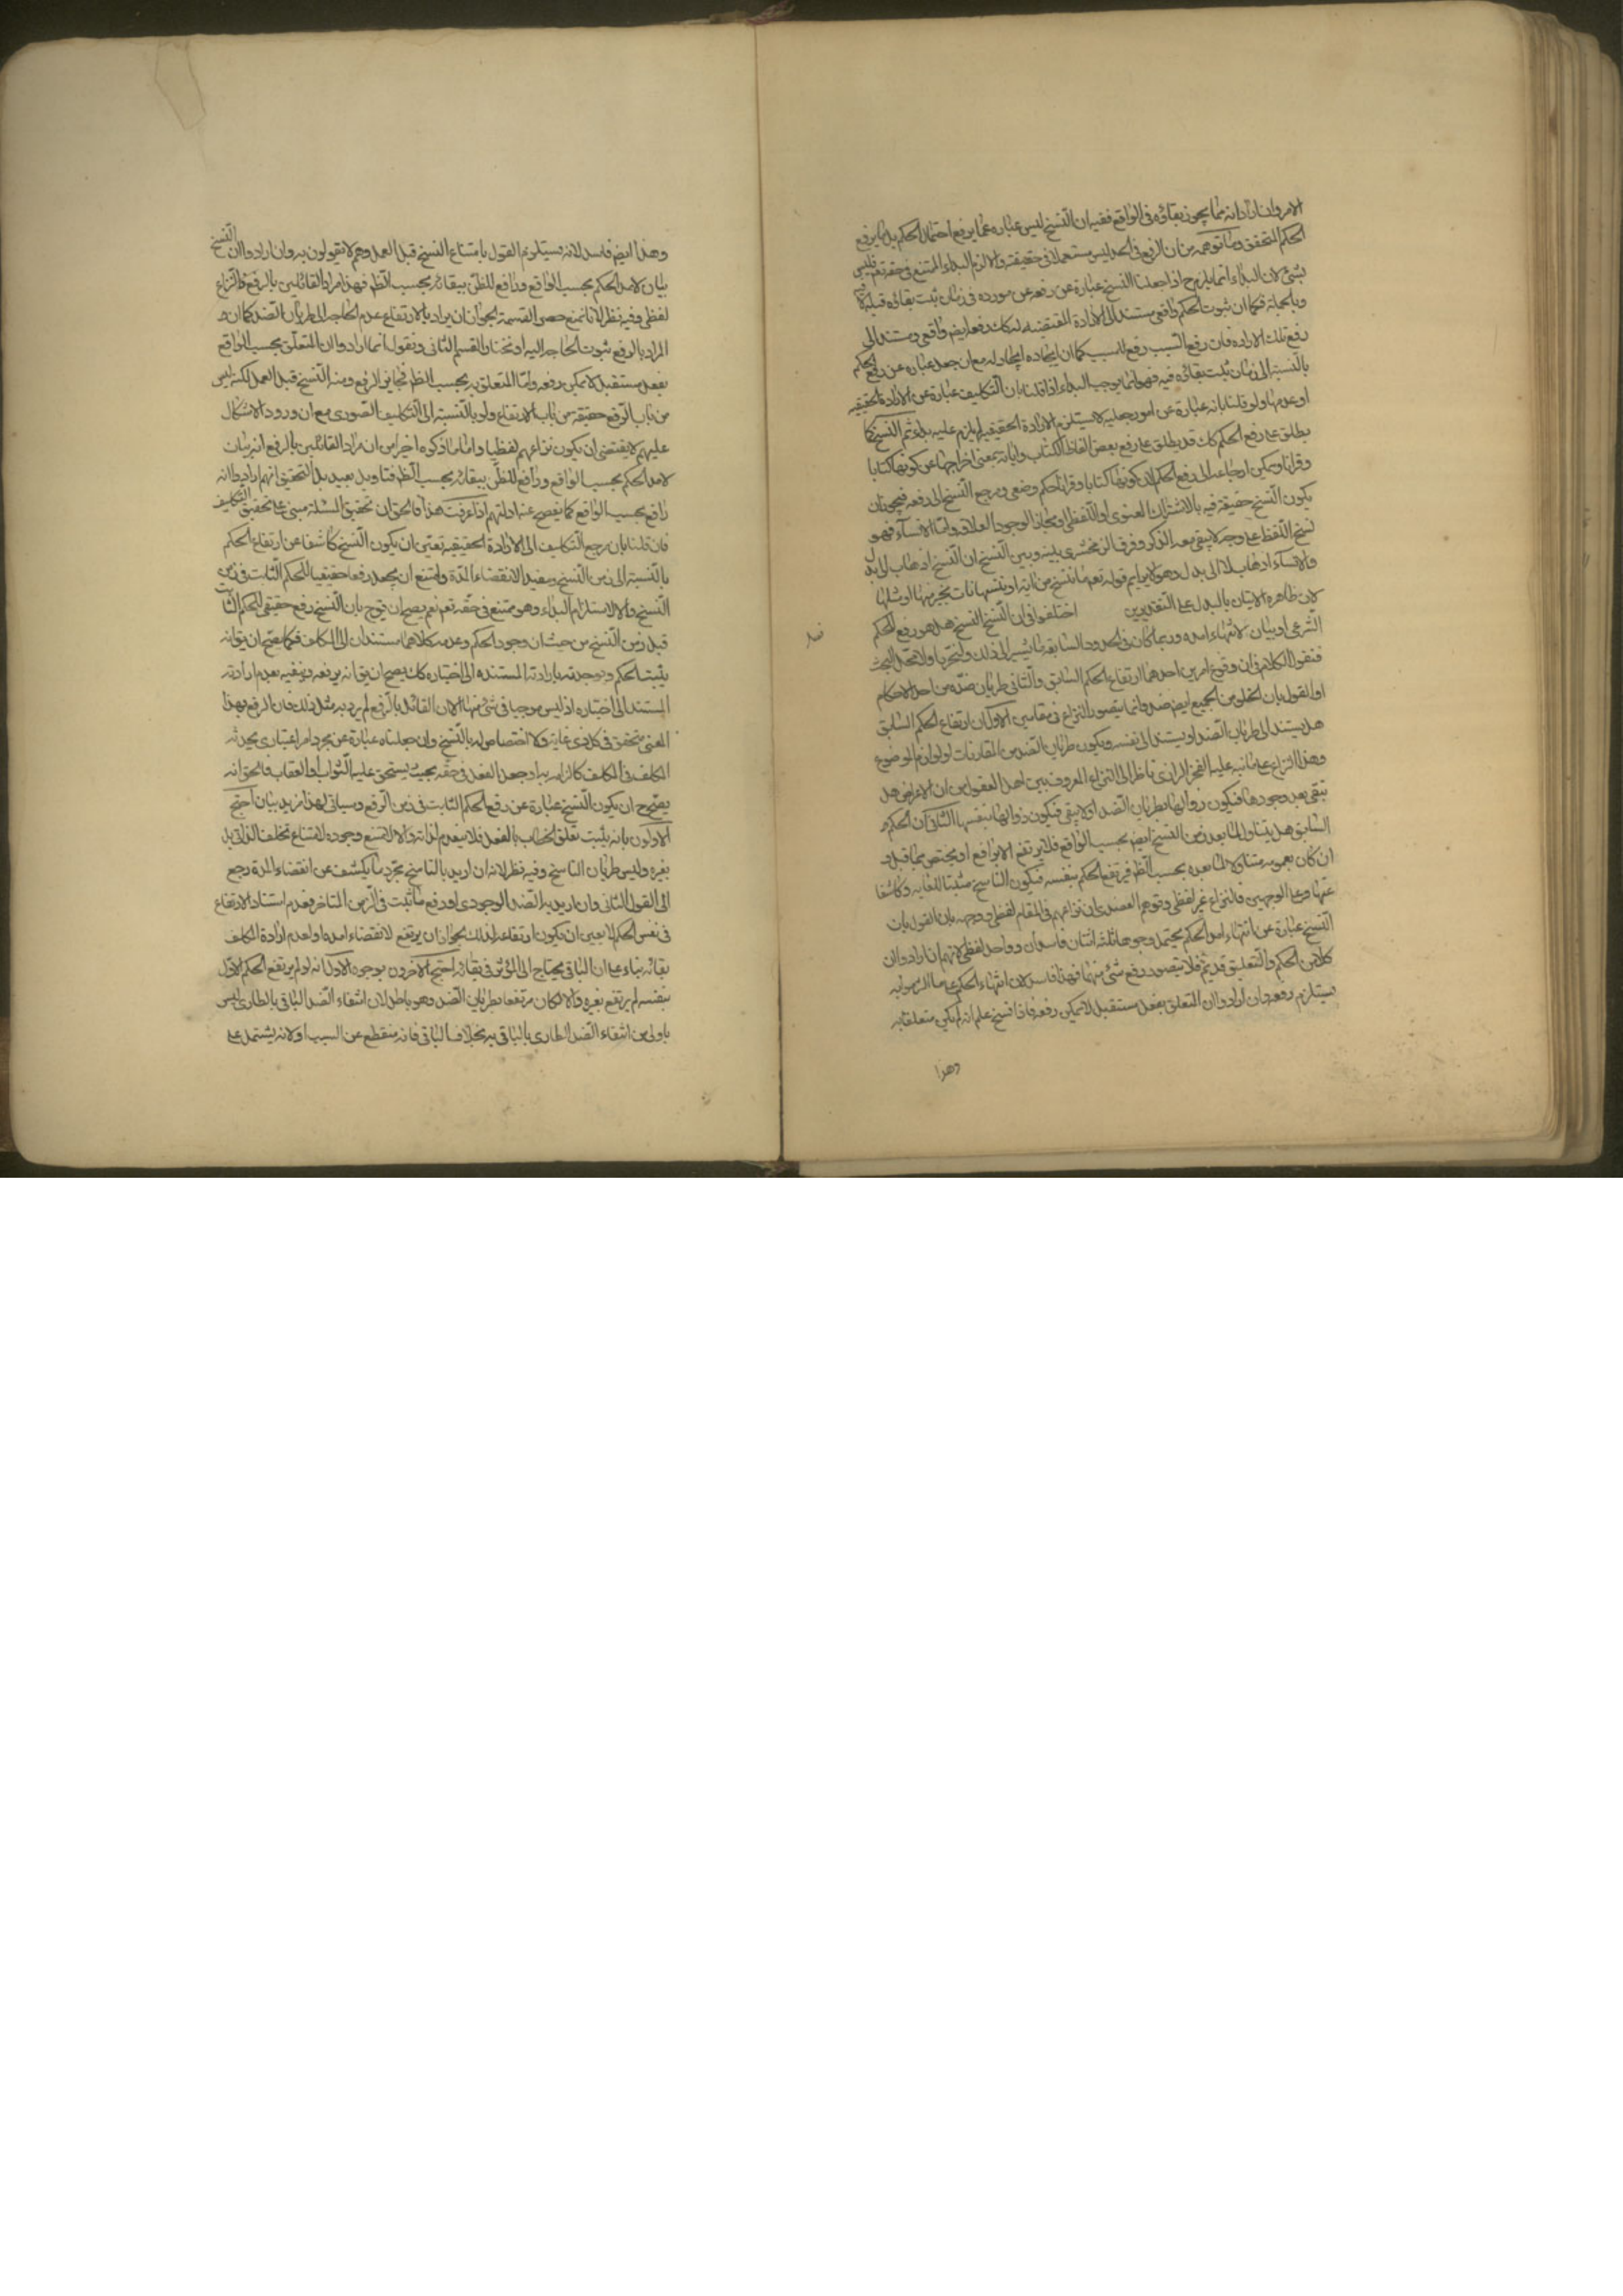 الامر وان اراد انه مما يجوز بقاؤه فى الواقع ففيه ان النسخ ليس عبارة عما يرفع احتمال الحكم بل ما يرفع
الحكم المتحقق وما توهمه من ان الرفع فى الحد ليس مستعملا فى حقيقته والا لزم البداء الممتنع فى حقه تعم فليس
بشئ لان البداء انما يلزم ح اذا جعلنا النسخ عبارة عن رفعه عن مورده فى زمان ثبت بقائه فيه لا قبله
وبالجملة فكما ان ثبوت الحكم واقعى مستند الى الارادة المقتضية له كك رفعه ايض واقعى ومستند الى
رفع تلك الارادة فان رفع السبب رفع للمسبب كما ان ايجاده ايجاد له مع ان جعله عبارة عن رفع الحكم
بالنسبة الى زمان ثبت بقاؤه فيه فهو انما يوجب البداء اذا قلنا بان التكليف عبارة عن الارادة الحقيقية
او عدمها ولو قلنا بانه عبارة عن امور جعلية لا يستلزم الارادة الحقيقية لم يلزم عليه بداء ثم النسخ كما
يطلق على رفع الحكم كك قد يطلق على رفع بعض الفاظ الكتاب واياته بمعنى اخراجها عن كونها كتابا
وقرانا ويمكن ارجاعه الى رفع الحكم لان كونها كتابا وقرانا حكم وضعى ومرجع النسخ الى رفعه فيجوز ان
يكون النسخ حقيقة فيه بالاشتراك المعنوى او اللفظى او مجازا لوجود العلاقة واما الانساء فهو
نسخ اللفظ على وجه لا يبقى معه الذكر وفرق الزمخشرى بينه وبين النسخ ان النسخ اذهاب الى بدل
والانساء اذهاب لا الى بدل وهو لا يلايم قوله تعم ما ننسخ من اية او ننسها نات بخير منها او مثلها
لان ظاهره الاتيان بالبدل على التقديرين اختلفوا فى ان النسخ هل هو رفع للحكم
فصل
الشرعى او بيان لانتهاء امده وربما كان فى الحدود السابقة ما يشير الى ذلك ولنحرر اولا محل البحث
فنقول الكلام فى ان وقوع امرين احدهما ارتفاع الحكم السابق والثانى طريان ضده من احد الاحكام
او القول بان الخلو من الجميع ايض ضد وانما يتصور النزاع فى مقامين الاول ان ارتفاع الحكم السابق
هل يستند الى طريان الضد او يستند الى نفسه ويكون طريان الضد من المقارنات او لوازم الموضوع
وهذا النزاع على ما نبه عليه الفخر الرازى ناظر الى النزاع المعروف بين اهل المعقول من ان الاعراض هل
تبقى بعد وجودها فيكون زوالها بطريان الضد او لا يبقى فيكون زوالها بنفسها الثانى ان الحكم
السابق هل يتناول ما بعد زمن النسخ ايض بحسب الواقع فلا يرتفع الا برافع او يختص بما قبله و
ان كان بعمومه متناولا لما بعده بحسب الظ فيرتفع الحكم بنفسه فيكون الناسخ مثبتا للغاية وكاشفا
عنها وعلى الوجهين فالنزاع غير لفظى وتوهم العضدى ان نزاعهم فى المقام لفظى ووجهه بان القول بان
النسخ عبارة عن انتهاء امد الحكم يحتمل وجوها ثلثة اثنان فاسدان وواحد لفظى لانهم ان ارادوا ان
كلا من الحكم والتعليق قديم فلا يتصور رفع شئ منهما فهذا فاسد لان انتهاء الحكم على ما التزموا به
يستلزم رفعه وان ارادوا ان المتعلق بفعل مستقبل لا يمكن رفعه فاذا نسخ علم انه لم يكن متعلقا به
وهذا
وهذا ايض فاسد لانه يستلزم القول بامتناع النسخ قبل العمل وهم لا يقولون به وان ارادوا ان النسخ
بيان لامد الحكم بحسب الواقع ورافع للظن ببقائه بحسب الظ فهذا مراد القائلين بالرفع فالنزاع
لفظى وفيه نظر لانا نمنع حصر القسمة لجواز ان يراد بالارتفاع عدم الحاجة الى طريان الضد كما ان
المراد بالرفع ثبوت الحاجة اليه او نختار القسم الثانى ونقول انما ارادوا ان المتعلق بحسب الواقع
بفعل مستقبل لا يمكن رفعه واما المتعلق به بحسب الظ فجايز الرفع ومنه النسخ قبل العمل لكنه ليس
من باب الرفع حقيقة من باب الارتفاع ولو بالنسبة الى التكليف الصورى مع ان ورود الاشكال
عليهم لا يقتضى ان يكون نزاعهم لفظيا واما ما ذكره اخيرا من ان مراد القائلين بالرفع انه بيان
لامد الحكم بحسب الواقع ورافع للظن ببقائه بحسب الظ فتاويل بعيد بل التحقيق انهم ارادوا انه
رافع بحسب الواقع كما يفصح عنه ادلتهم اذا عرفت هذا فالحق ان تحقيق المسئلة مبنى على تحقيق التكليف
فان قلنا بان مرجع التكليف الى الارادة الحقيقية تعين ان يكون النسخ كاشفا عن ارتفاع الحكم
بالنسبة الى زمن النسخ ومفيدا لانقضاء المدة وامتنع ان يجعل رفعا حقيقيا للحكم الثابت فى زمن
النسخ والا لاستلزام البداء وهو ممتنع فى حقه تعم نعم يصح ان يق ح بان النسخ رفع حقيقى للحكم الثابت
قبل زمن النسخ من حيث ان وجود الحكم وعدمه كلاهما مستندان الى المكلف فكما يصح ان يق انه
يثبت الحكم ويوجده بارادته المستندة الى اختياره كك يصح ان يق انه يرفعه وينفيه بعدم ارادته
المستند الى اختياره اذ ليس موجبا فى شئ منهما الا ان القائل بالرفع لم يرد به مثل ذلك فان الرفع بهذا
المعنى متحقق فى كل ذى غاية ولا اختصاص له بالنسخ وان جعلناه عبارة عن مجرد امر اعتبارى يحدثه
المكلف فى المكلف كالزامه به او جعل الفعل فى حقه بحيث يستحق عليه الثواب او العقاب فالحق انه
يصح ح ان يكون النسخ عبارة عن رفع الحكم الثابت فى زمن الرفع وسياتى لهذا مزيد بيان احتج
الاولون بانه يثبت تعلق الخطاب بالفعل فلا ينعدم لذاته والا لامتنع وجوده لامتناع تخلف الذاتى بل
بغيره وليس طريان الناسخ وفيه نظر لانه ان اريد بالناسخ مجرد ما يكشف عن انقضاء المدة رجع
الى القول الثانى وان اريد به الضد الوجودى او رفع ما ثبت فى الزمن المتاخر فعدم استناد الارتفاع
فى نفس الحكم لا يعين ان يكون ارتفاعه لذلك لجواز ان يرتفع لانقضاء امده او لعدم ارادة المكلف
بقائه بناء على ان الباقى يحتاج الى المؤثر فى بقائه احتج الاخرون بوجوه الاول انه لو لم يرتفع الحكم الاول
بنفسه لم يرتفع بغيره والا لكان مرتفعا بطريان الضد وهو باطل لان انتفاء الضد الباقى بالطارى ليس
باولى من انتفاء الضد الطارى بالباقى به بخلاف الباقى فانه منقطع عن السبب او لانه يشتمل على